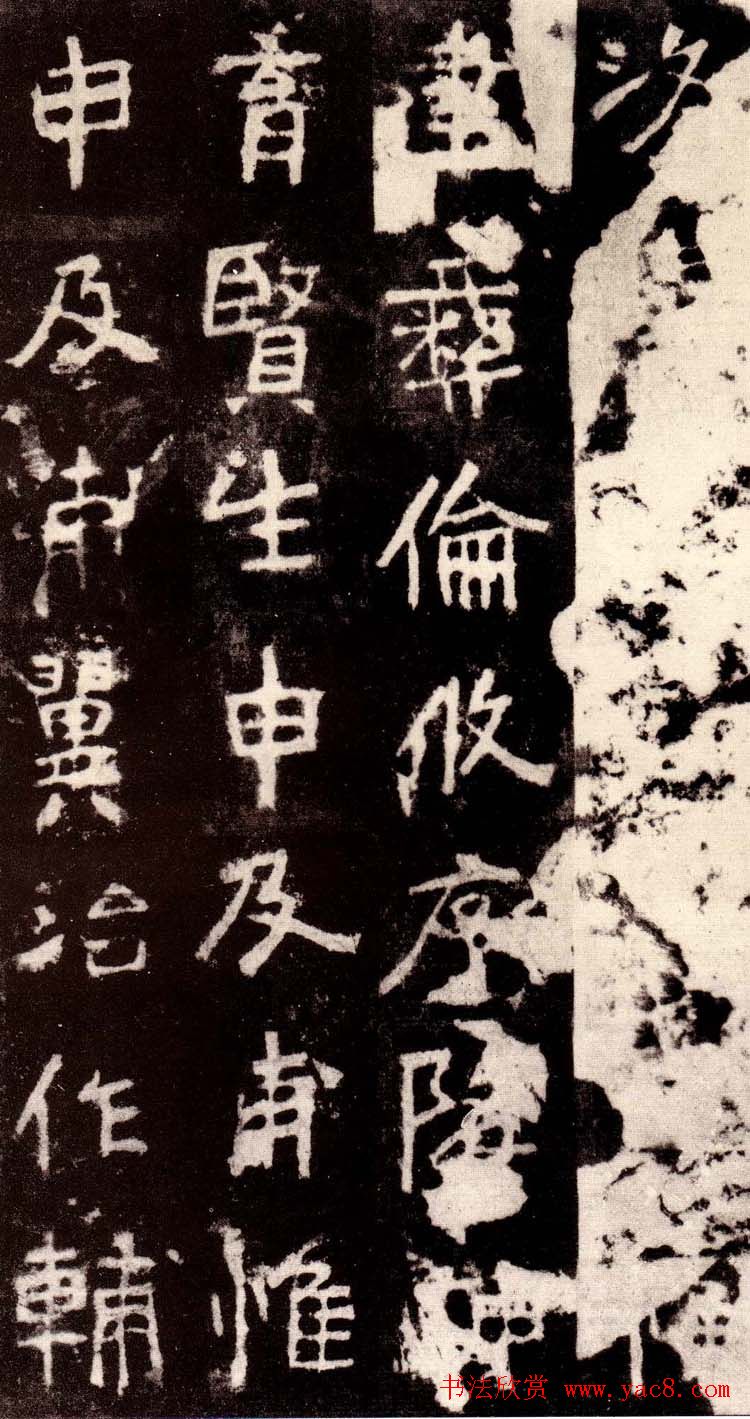 彝倫攸序
育賢生申及甫惟
申及甫翼治作輔
书法欣赏 www.yac8.com